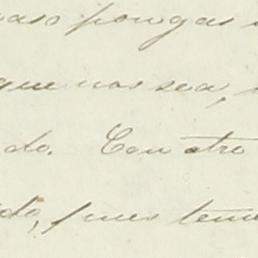 caso pongas
que nos sea,
do. Con otro
pues tene